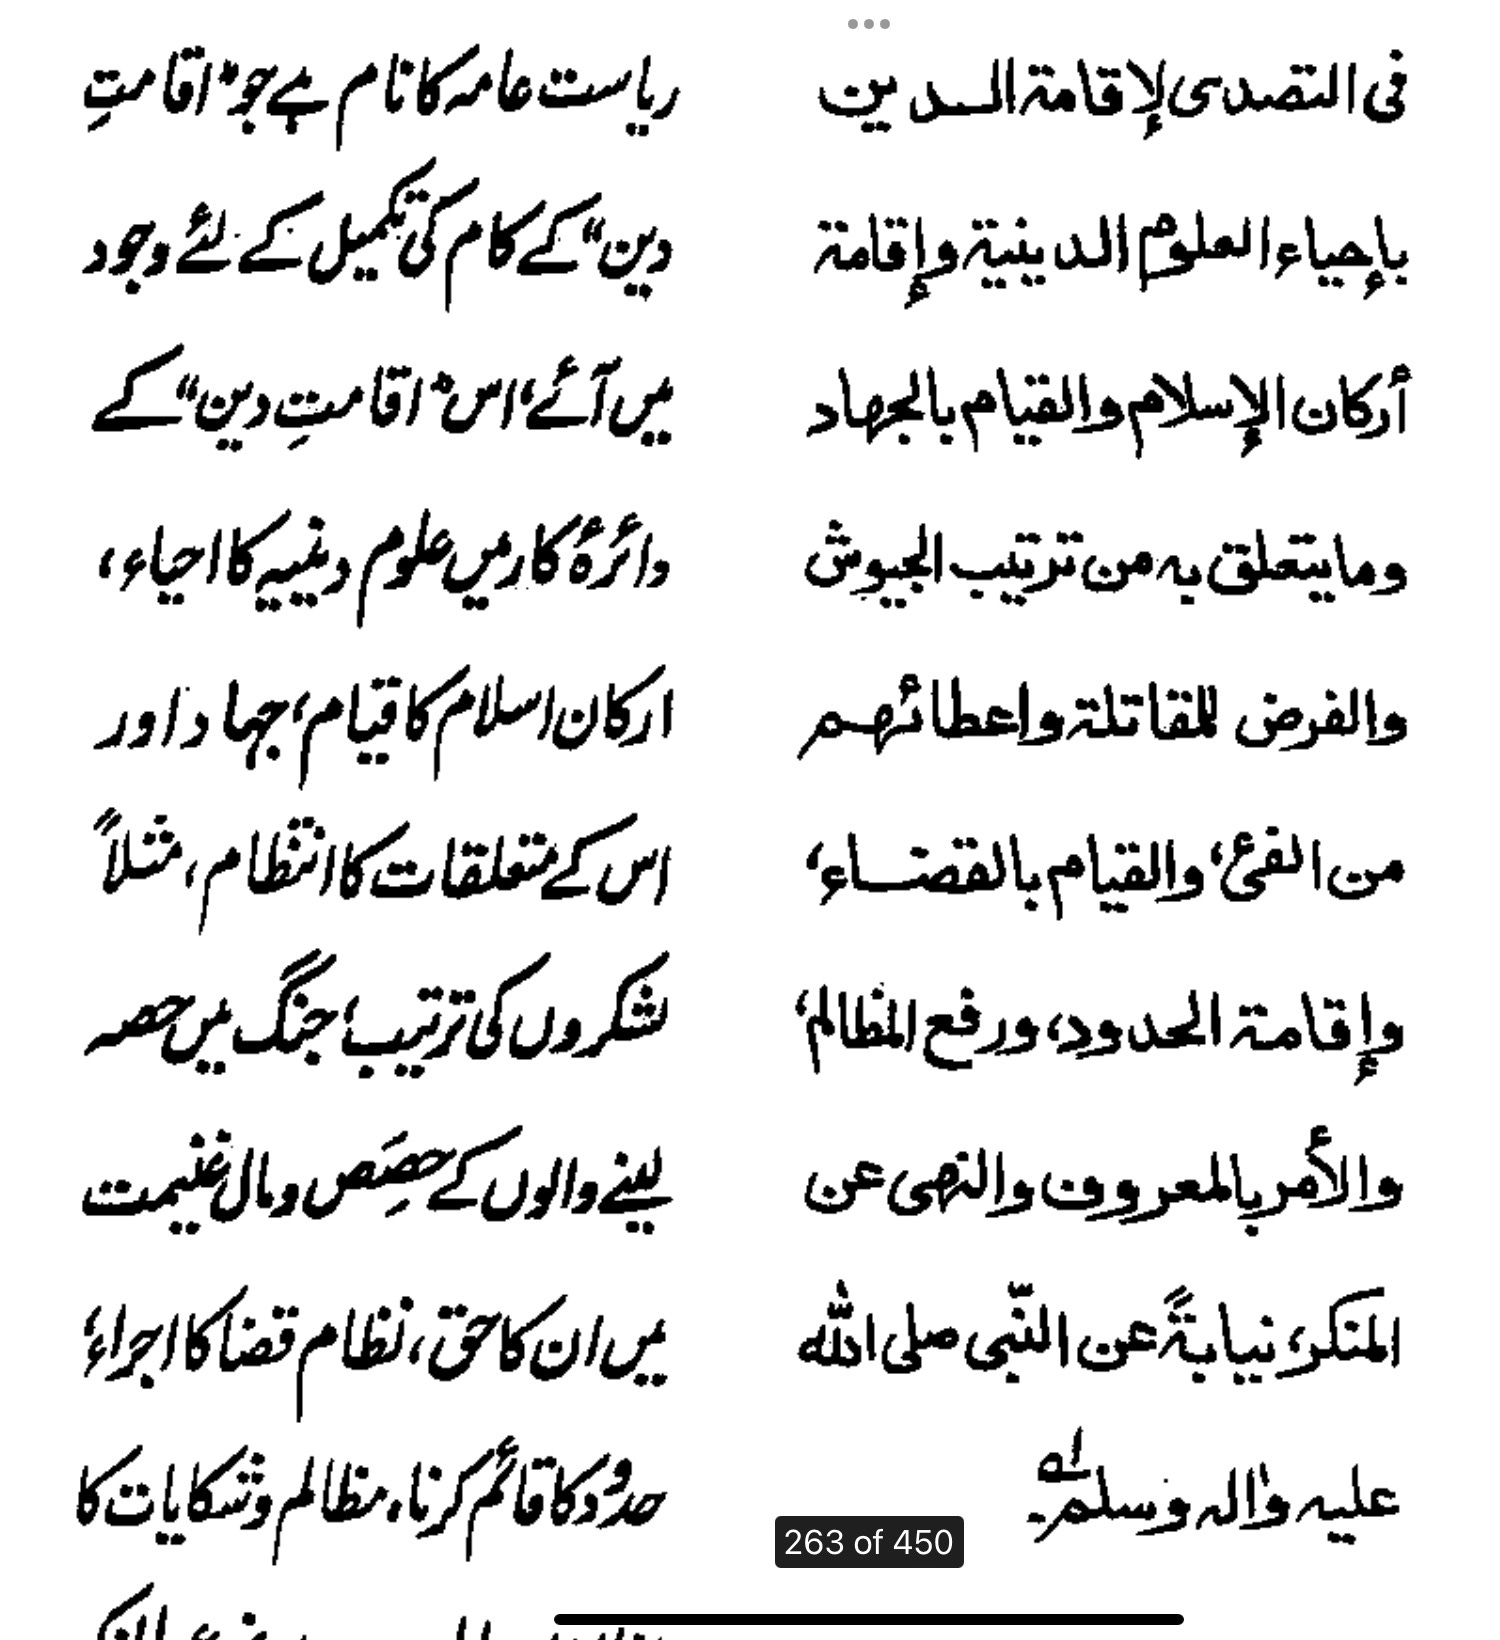 فی التصدی لإقامة الــدین
بإحیاء العلوم الدینیة وإقامة
أرکان الإسلام والقیام بالجهاد
وما یتعلق به من ترتیب الجیوش
والفرض للمقاتلة واعطائهم
من الفئ، والقیام بالقضــاء،
وإقامة الحدود، ورفع المظالم،
والأمر بالمعروف والنهی عن
المنکر، نیابةً عن النّبی صلی الله
علیه واٰله وسلم۔
ریاست عامہ کا نام ہے جو "اقامتِ
دین" کے کام کی تکمیل کے لئے وجود
میں آئے، اس "اقامتِ دین" کے
دائرۂ کار میں علوم دینیہ کا احیاء،
ارکان اسلام کا قیام، جہاد اور
اس کے متعلقات کا انتظام، مثلاً
لشکروں کی ترتیب، جنگ میں حصہ
لینے والوں کے حِصَص ومال غنیمت
میں ان کا حق، نظام قضا کا اجراء،
حدود کا قائم کرنا، مظالم وشکایات کا
263 of 450